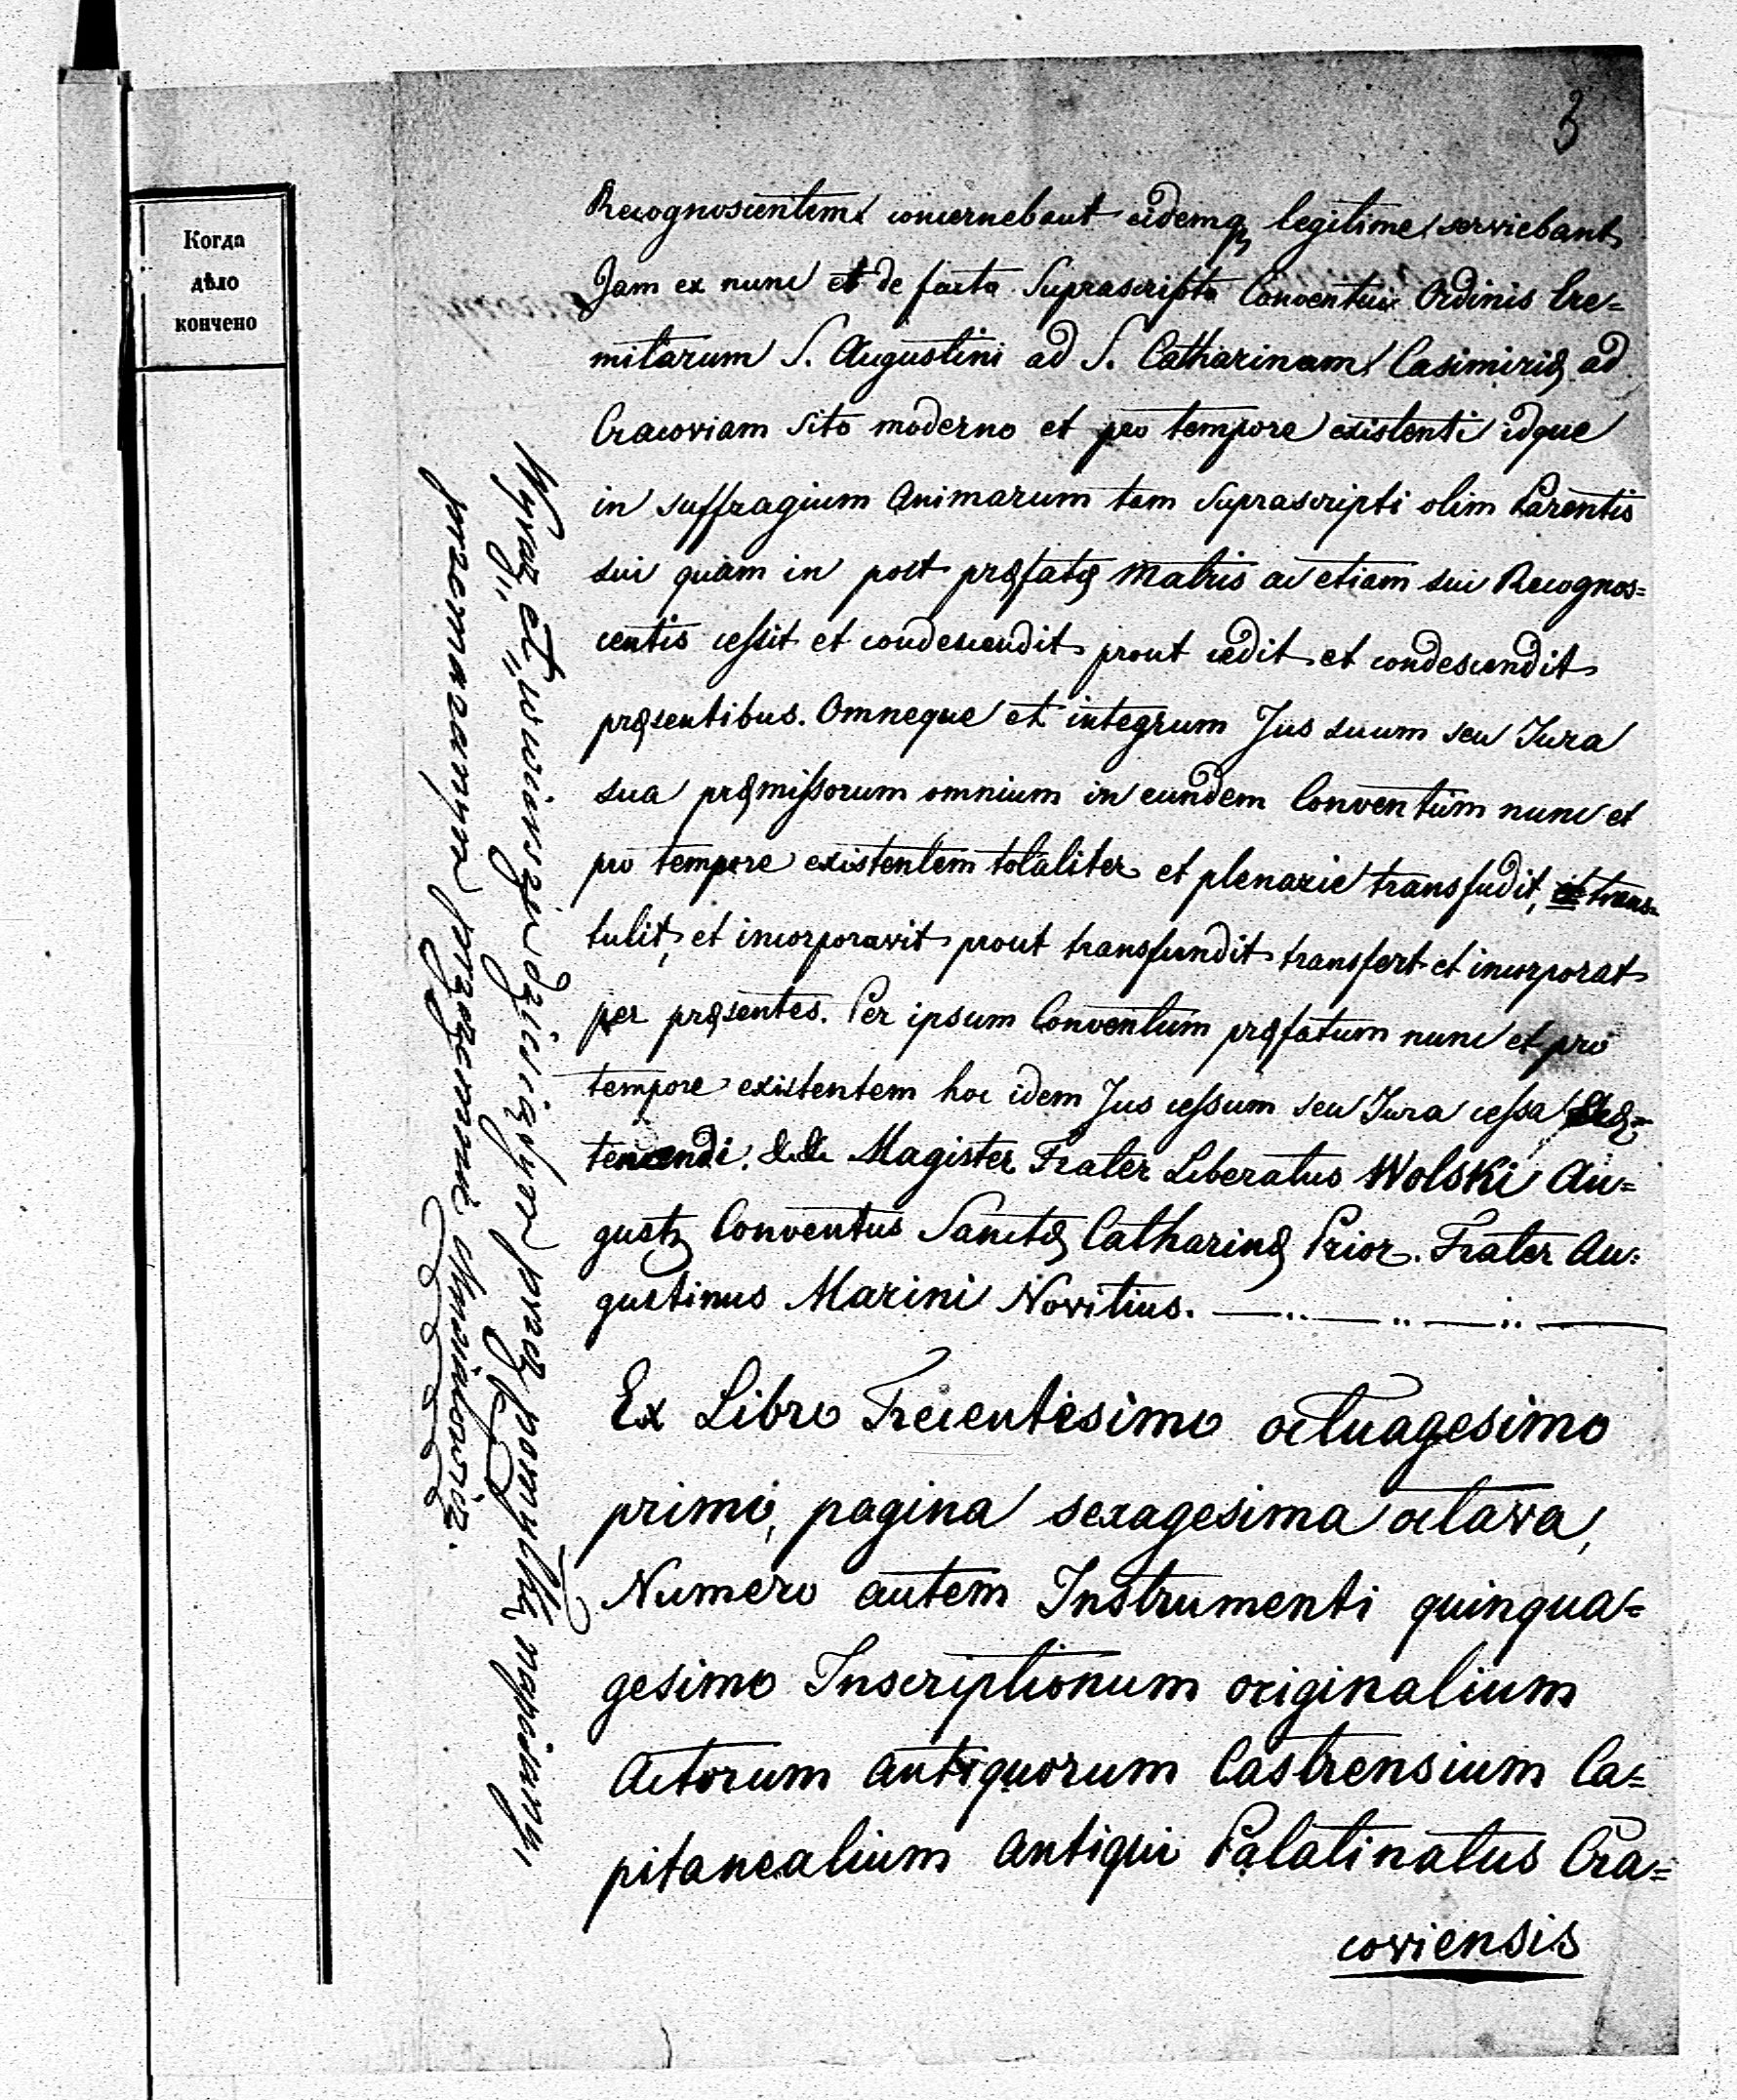 3
Когда
дѣло
кончено
Recognoscentem concernebant eidemq legitime serviebant
Jam ex nunc et de facto Suprascripto Conventui Ordinis Ere=
mitarum S. Augustini ad S. Catharinam Casimiriæ ad
Cracoviam sito moderno et pro tempore existenti idque
in suffragium Animarum tam Suprascripti olim Parentis
sui quàm in post præfatæ Matris ac etiam sui Recognos=
centis cessit et condescendit prout cedit et condescendit
præsentibus. Omneque et integrum Jus suum seu Jura
sua præmissorum omnium in eundem Conventum nunc et
pro tempore existentem totaliter et plenarie transfudit, et trans=
tulit, et incorporavit prout transfundit transfert et incorporat
per præsentes. Per ipsum Conventum præfatum nunc et pro
tempore existentem hoc idem Jus cessum seu Jura cessa
tenendi. &c.&c. Magister Frater Liberatus Wolski Au=
gustz Conventus Sanctæ Catharinæ Prior. Frater Au=
gustinus Marini Novitius.
Ex Libro Trecentesimo octuagesimo
primo, pagina sexagesima octava,
Numero autem Instrumenti quinqua=
gesimo Inscriptionum originalium
Actorum antiquorum Castrensium Ca=
pitanealium antiqui Palatinatus Cra=
coviensis
Wyraz „et" w wierszu dziesiątym przez pomyłkę napisany
przemazanym przezemnie